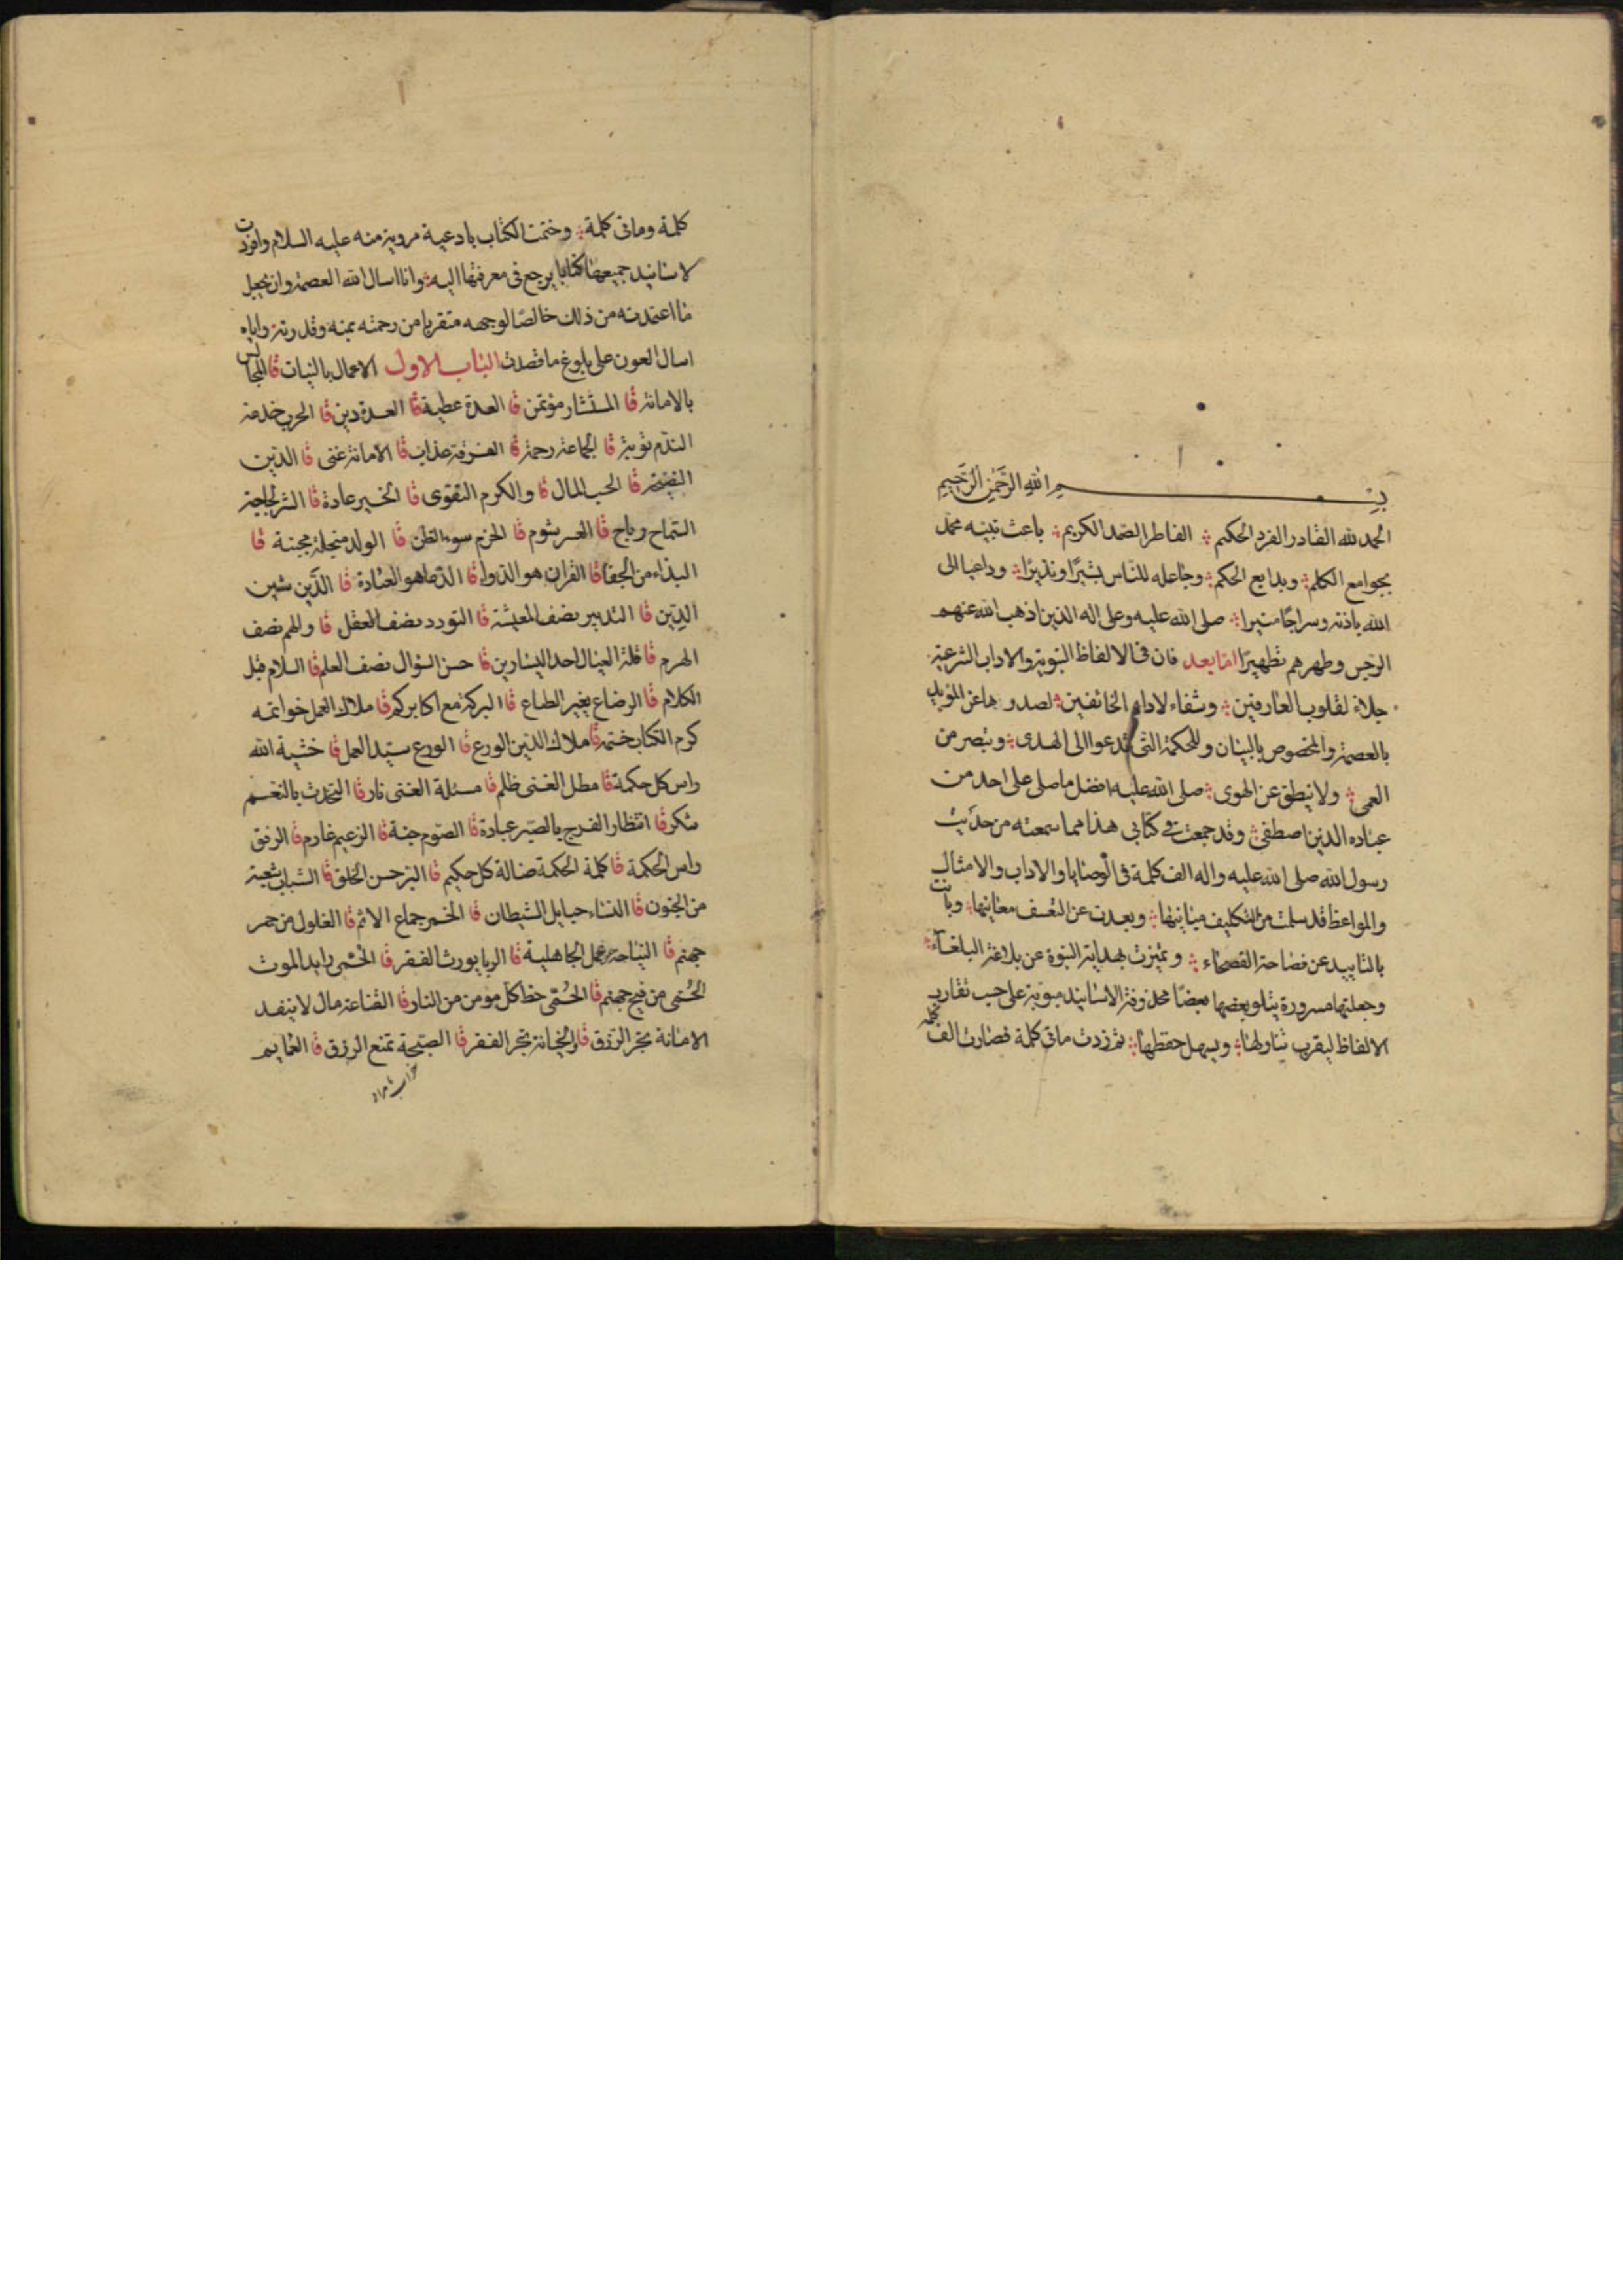 بسم الله الرحمن الرحيم
الحمد لله القادر الفرد الحكيم الفاطر الصمد الكريم باعث نبيه محمد
بجوامع الكلم وبدايع الحكم وجاعله للناس بشيرا ونذيرا وداعيا الى
الله باذنه وسراجا منيرا صلى الله عليه وعلى اله الذين اذهب الله عنهم
الرجس وطهرهم تطهيرا اما بعد فان في الالفاظ النبوية والاداب الشرعية
جلاء لقلوب العارفين وشفاء لادواء الخائفين لصدورها عن المؤيد
بالعصمة والمخصوص بالبيان والحكمة التى تدعوا الى الهدى وتبصر من
العمى ولا ينطق عن الهوى صلى الله عليه افضل ما صلى على احد من
عباده الذين اصطفى وقد جمعت في كتابي هذا مما سمعته من حديث
رسول الله صلى الله عليه واله الف كلمة في الوصايا والاداب والامثال
والمواعظ قد سلمت من التكليف مبانيها وبعدت عن التعسف معانيها وبانت
بالتاييد عن فصاحة الفصحاء وتميزت بهداية النبوة عن بلاغة البلغاء
وجعلتها مسرودة يتلو بعضها بعضا محذوفة الاسانيد مبوبة على حسب تقارب
الالفاظ ليقرب تناولها ويسهل حفظها ثم زدت ماتى كلمة فصارت الف كلمة
كلمة وماتى كلمة وختمت الكتاب بادعية مروية منه عليه السلام وافردت
لاسانيد جميعها كتابا يرجع في معرفتها اليه وانا اسال الله العصمة وان يجعل
ما اعتمدته من ذلك خالصا لوجهه متقربا من رحمته بمنه وقدرته واياه
اسال العون على بلوغ ما قصدت الباب الاول الاعمال بالنيات قا المجالس
بالامانة قا المستشار مؤتمن قا العدة عطية قا العدة دين قا الحرب خدعة
الندم توبة قا الجماعة رحمة قا الفرقة عذاب قا الامانة غنى قا الدين
النصيحة قا الحسب المال قا والكرم التقوى قا الخير عادة قا الشر لجاجة
السماح رباح قا العسر شوم قا الحزم سوء الظن قا الولد مبخلة مجبنة قا
البذاء من الجفا قا القران هو الدوا قا الدعا هو العبادة قا الدين شين
الدين قا التدبير نصف المعيشة قا التودد نصف العقل قا والهم نصف
الهرم قا قلة العيال احد اليسارين قا حسن السؤال نصف العلم قا السلام قبل
الكلام قا الرضاع يغير الطباع قا البركة مع اكابركم قا ملاك العمل خواتمه
كرم الكتاب ختمه قا ملاك الدين الورع قا الورع سيد العمل قا خشية الله
راس كل حكمة قا مطل الغنى ظلم قا مسئلة الغنى نار قا التحدث بالنعم
شكر قا انتظار الفرج بالصبر عبادة قا الصوم جنة قا الزعيم غارم قا الرفق
راس الحكمة قا كلمة الحكمة ضالة كل حكيم قا البر حسن الخلق قا الشباب شعبة
من الجنون قا النساء حبايل الشيطان قا الخمر جماع الاثم قا الغلول من جمر
جهنم قا النياحة عمل الجاهلية قا الربا يورث الفقر قا الحمى رايد الموت
الحمى من فيح جهنم قا الحمى حظ كل مومن من النار قا القناعة مال لا ينفد
الامانة تجر الرزق قا والخيانة تجر الفقر قا الصبحة تمنع الرزق قا العمايم